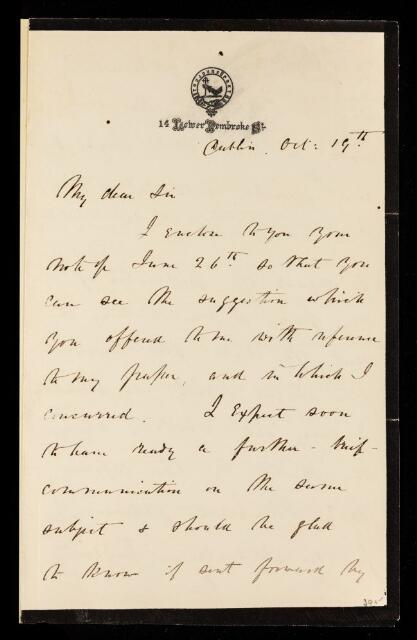 14 Lower Pembroke St.
Dublin. Oct: 19th
My dear Sir
I enclose to you your
note of June 26th. so that you
can see the suggestion which
you offered to me with reference
to my paper, and in which I
concurred. I Expect soon
to have ready a further - brief -
communication on the same
subject & should be glad
to know if sent forward by